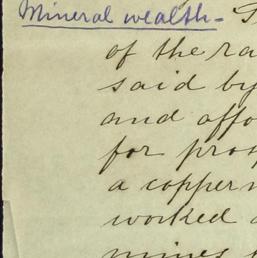 Mineral wealth-
of the ra
said by
and affo
for prosp
a copperm
worked a
mines